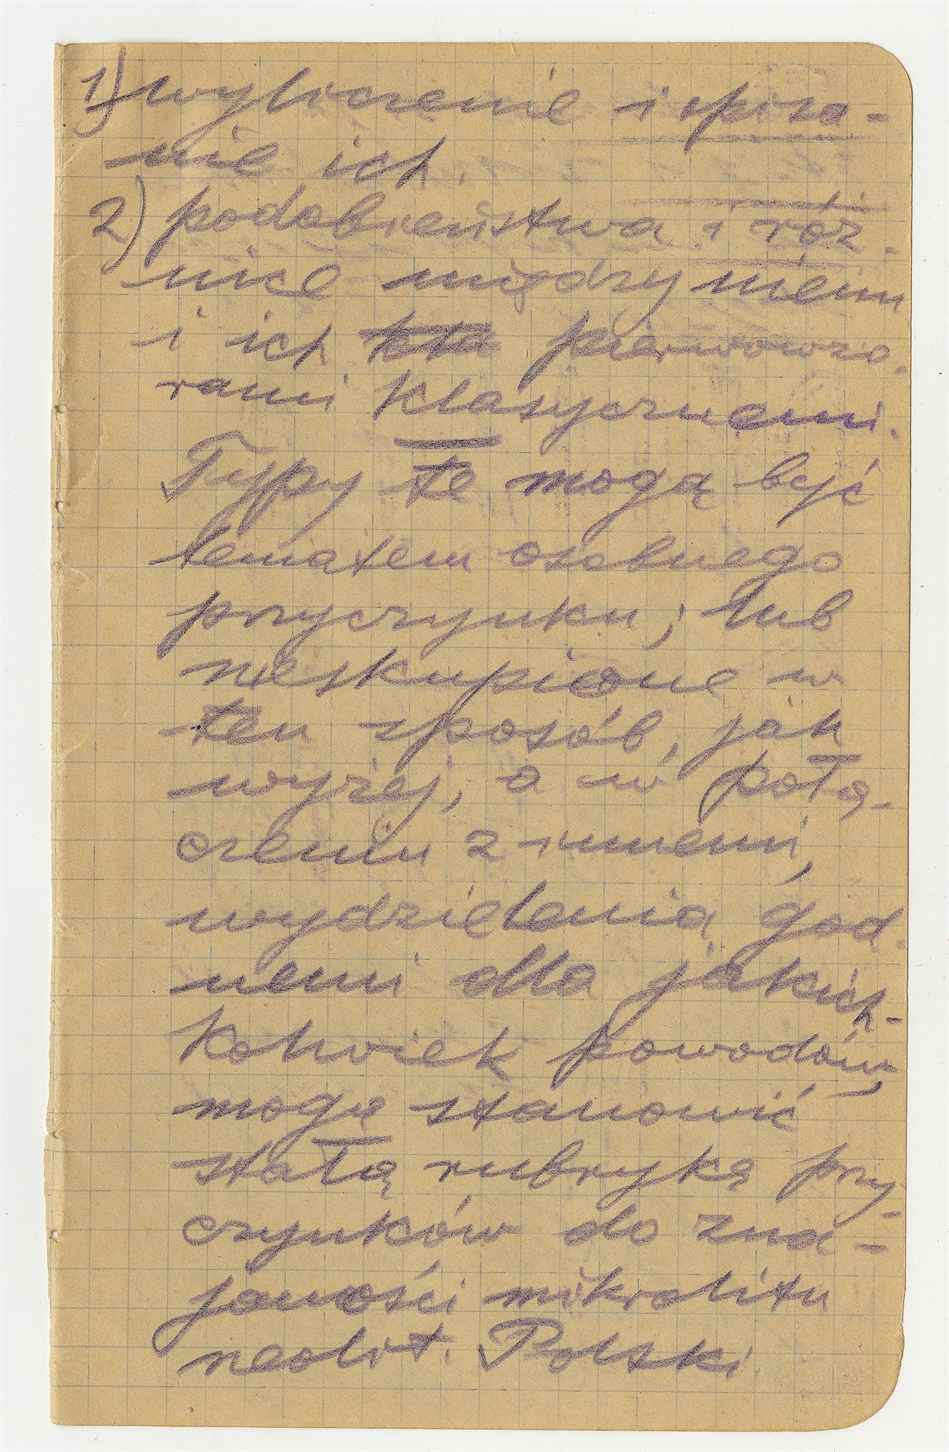 1) wyliczenie i opisa-
nie ich.
2) podobieństwa i róż-
nice między niemi
i ich kla pierwowzo-
rami klasycznemi.
Typy te mogą być
tematem osobnego
przyczynku; lub
nieskupione w
ten sposób, jak
wyżej, a w połą-
czeniu z innemi,
wydzielenia god-
nemi dla jakich-
kolwiek powodów,
mogą stanowić
stałą rubrykę przy-
czynków do zna-
jomości mikrolitu
neolit. Polski.